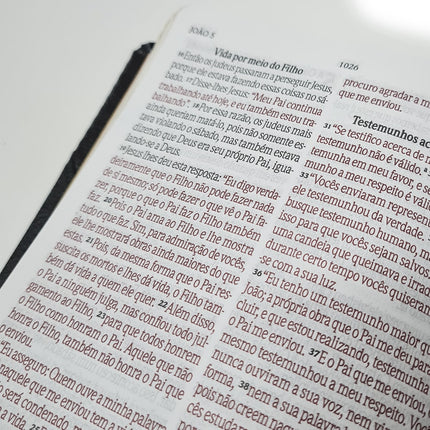 JOÃO 5
1026
Vida por meio do Filho
16 Então os judeus passaram a perseguir Jesus,
porque ele estava fazendo essas coisas no sá-
bado. 17 Disse-lhes Jesus: "Meu Pai continua
trabalhando até hoje, e eu também estou tra-
balhando". 18 Por essa razão, os judeus mais
ainda queriam matá-lo, pois não somente es-
tava violando o sábado, mas também estava
dizendo que Deus era seu próprio Pai, igua-
lando-se a Deus.
19 Jesus lhes deu esta resposta: "Eu digo verda-
deiramente que o Filho não pode fazer nada
de si mesmo; só pode fazer o que vê o Pai fa-
zer, porque o que o Pai faz o Filho também
faz. 20 Pois o Pai ama ao Filho e lhe mostra
tudo o que faz. Sim, para admiração de vocês,
ele lhe mostrará obras ainda maiores do que
estas. 21 Pois, da mesma forma que o Pai res-
suscita os mortos e lhes dá vida, o Filho tam-
bém dá vida a quem ele quer. 22 Além disso,
o Pai a ninguém julga, mas confiou todo jul-
gamento ao Filho, 23 para que todos honrem
o Filho como honram o Pai. Aquele que não
honra o Filho, também não honra o Pai que
o enviou.
"Eu asseguro: Quem ouve a minha palavra
naquele que me enviou tem a vida
será condenado, mas
a vida. 25
procuro agradar a m
que me enviou.
Testemunhos ac
31 "Se testifico acerca de m
testemunho não é válido.
temunha em meu favor, e se
munho a meu respeito é válido
33 "Vocês enviaram represen
da verdade.
busque testemunho humano, m
isso para que vocês sejam salvos.
uma candeia que queimava e irrad
durante certo tempo vocês quiseram
se com a sua luz.
36 "Eu tenho um testemunho maior
João; a própria obra que o Pai me deu para
cluir, e que estou realizando, testemunha
o Pai me enviou. 37 E o Pai que me enviou,
mesmo testemunhou a meu respeito.
nunca ouviram a sua voz, nem vir
38 nem a sua palavra
pois não creem naque
cês estuda